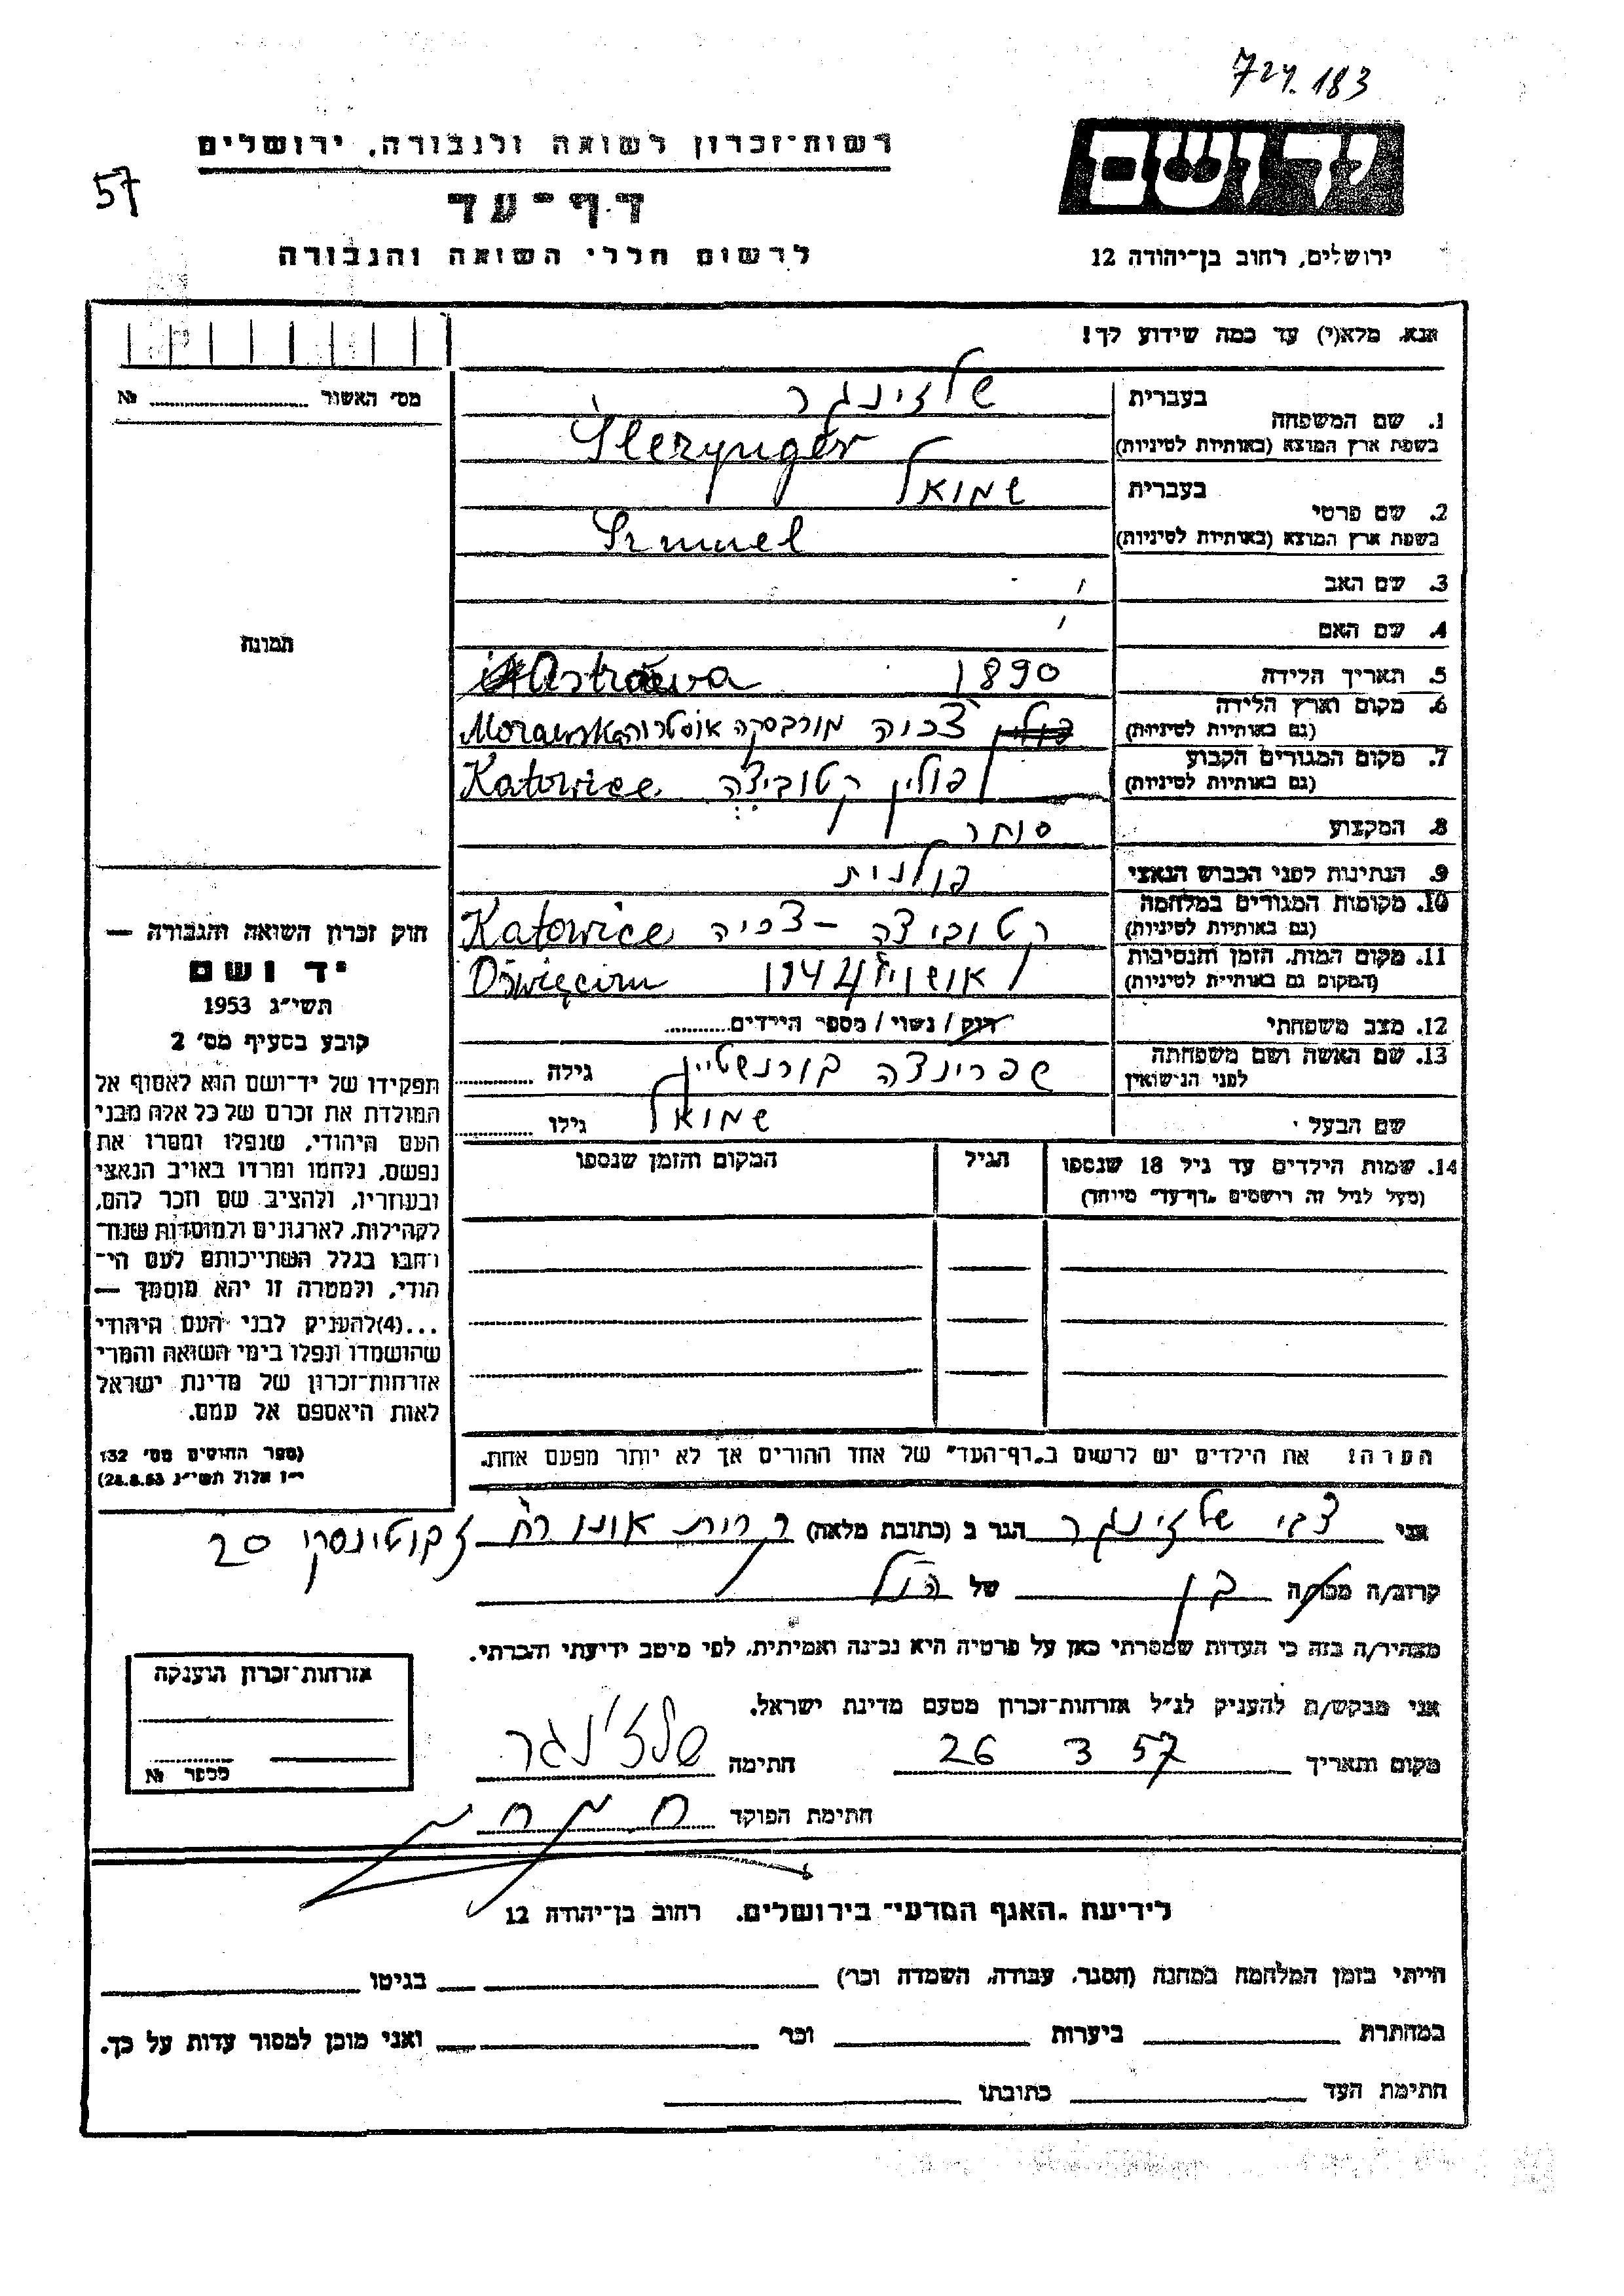 724.183
רשות־זכרון לשואה ולגבורה, ירושלים
57
יד ושם
דף־עד
לרשום חללי השואה והגבורה
ירושלים, רחוב בן־יהודה 12
אנא, מלא(י) עד כמה שידוע לך!
מס׳ האשור № 
1. שם המשפחה בעברית שלזינגר
בשפת ארץ המוצא (באותיות לטיניות) Szlezynger
2. שם פרטי בעברית שמואל
בשפת ארץ המוצא (באותיות לטיניות) Szmuel
3. שם האב
4. שם האם
תמונה
5. תאריך הלידה 1890
6. מקום וארץ הלידה Ostrawa
(גם באותיות לטיניות) פולין צכיה מורבסקה אוסטרובה Morawska
7. מקום המגורים הקבוע
(גם באותיות לטיניות) פולין קטוביצה Katowice
8. המקצוע סוחר
9. הנתינות לפני הכבוש הנאצי פולנית
10. מקומות המגורים במלחמה
(גם באותיות לטיניות) קטוביצה – צכיה Katowice
11. מקום המות, הזמן והנסיבות
(המקום גם באותיות לטיניות) אושויץ 1942 Oświęcim
12. מצב משפחתי רווק / נשוי / מספר הילדים
13. שם האשה ושם משפחתה
לפני הנישואין שפרינצה בורנשטיין גילה
שם הבעל שמואל גילו
14. שמות הילדים עד גיל 18 שנספו הגיל המקום והזמן שנספו
(מעל לגיל זה רושמים „דף־עד״ מיוחד)
חוק זכרון השואה והגבורה —
יד ושם
תשי״ג 1953
קובע בסעיף מס׳ 2
תפקידו של יד־ושם הוא לאסוף אל
המולדת את זכרם של כל אלה מבני
העם היהודי, שנפלו ומסרו את
נפשם, נלחמו ומרדו באויב הנאצי
ובעוזריו, ולהציב שם וזכר להם,
לקהילות, לארגונים ולמוסדות שנח־
רבו בגלל השתייכותם לעם הי־
הודי, ולמטרה זו יהא מוסמך —
...(4)להעניק לבני העם היהודי
שהושמדו ונפלו בימי השואה והמרי
אזרחות־זכרון של מדינת ישראל
לאות היאספם אל עמם.
(ספר החוקים מס׳ 132
י״ז אלול תשי״ג 28.8.53)
הערה: את הילדים יש לרשום ב„דף־העד״ של אחד ההורים אך לא יותר מפעם אחת.
אני צבי שלזינגר הגר ב (כתובת מלאה) קרית אונו רח׳ ז׳בוטינסקי 20
קרוב/ה מכר/ה בן של הנ״ל
מצהיר/ה בזה כי העדות שמסרתי כאן על פרטיה היא נכונה ואמיתית, לפי מיטב ידיעתי והכרתי.
אני מבקש/ת להעניק לנ״ל אזרחות־זכרון מטעם מדינת ישראל.
מקום ותאריך 26 3 57 חתימה שלזינגר
חתימת הפוקד
אזרחות־זכרון הוענקה
מספר №
לידיעת „האגף המדעי״ בירושלים, רחוב בן־יהודה 12
הייתי בזמן המלחמה במחנה (הסגר, עבודה, השמדה וכר׳) בגיטו
במחתרת ביערות וכר׳ ואני מוכן למסור עדות על כך.
חתימת העד כתובתו